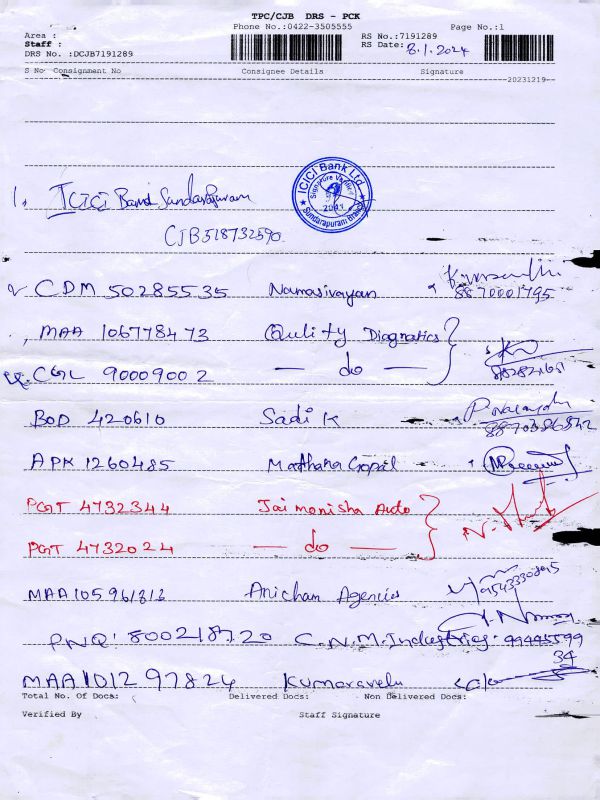 TPC/CJB DRS - PCK
Phone No.:0422-3505555 Page No.:1
Area : RS No.:7191289
Staff : RS Date: 8.1.2024
DRS No. :DCJB7191289
S No Consignment No Consignee Details Signature
20231219
ICICI Bank Ltd.
Sundarapuram Branch
1. ICICI Band Sundarapuram
CJB518732590
2 CDM 50285535 Namasivayan
8870001795
, MAA 106778473 Qulity Diagnostics
CGL 90009002 — do —
BOD 420610 Sadik
8870386842
APK 1260485 Mathana Gopal
PGT 4732344 Jai monisha Auto
PGT 4732024 — do —
MAA105961812 Anicham Agencies 9543330895
PNQ: 800218720 C.N.M.Industries: 99445599
34
MAA101297824 Kumaravelu
Total No. Of Docs: Delivered Docs: Non Delivered Docs:
Verified By Staff Signature